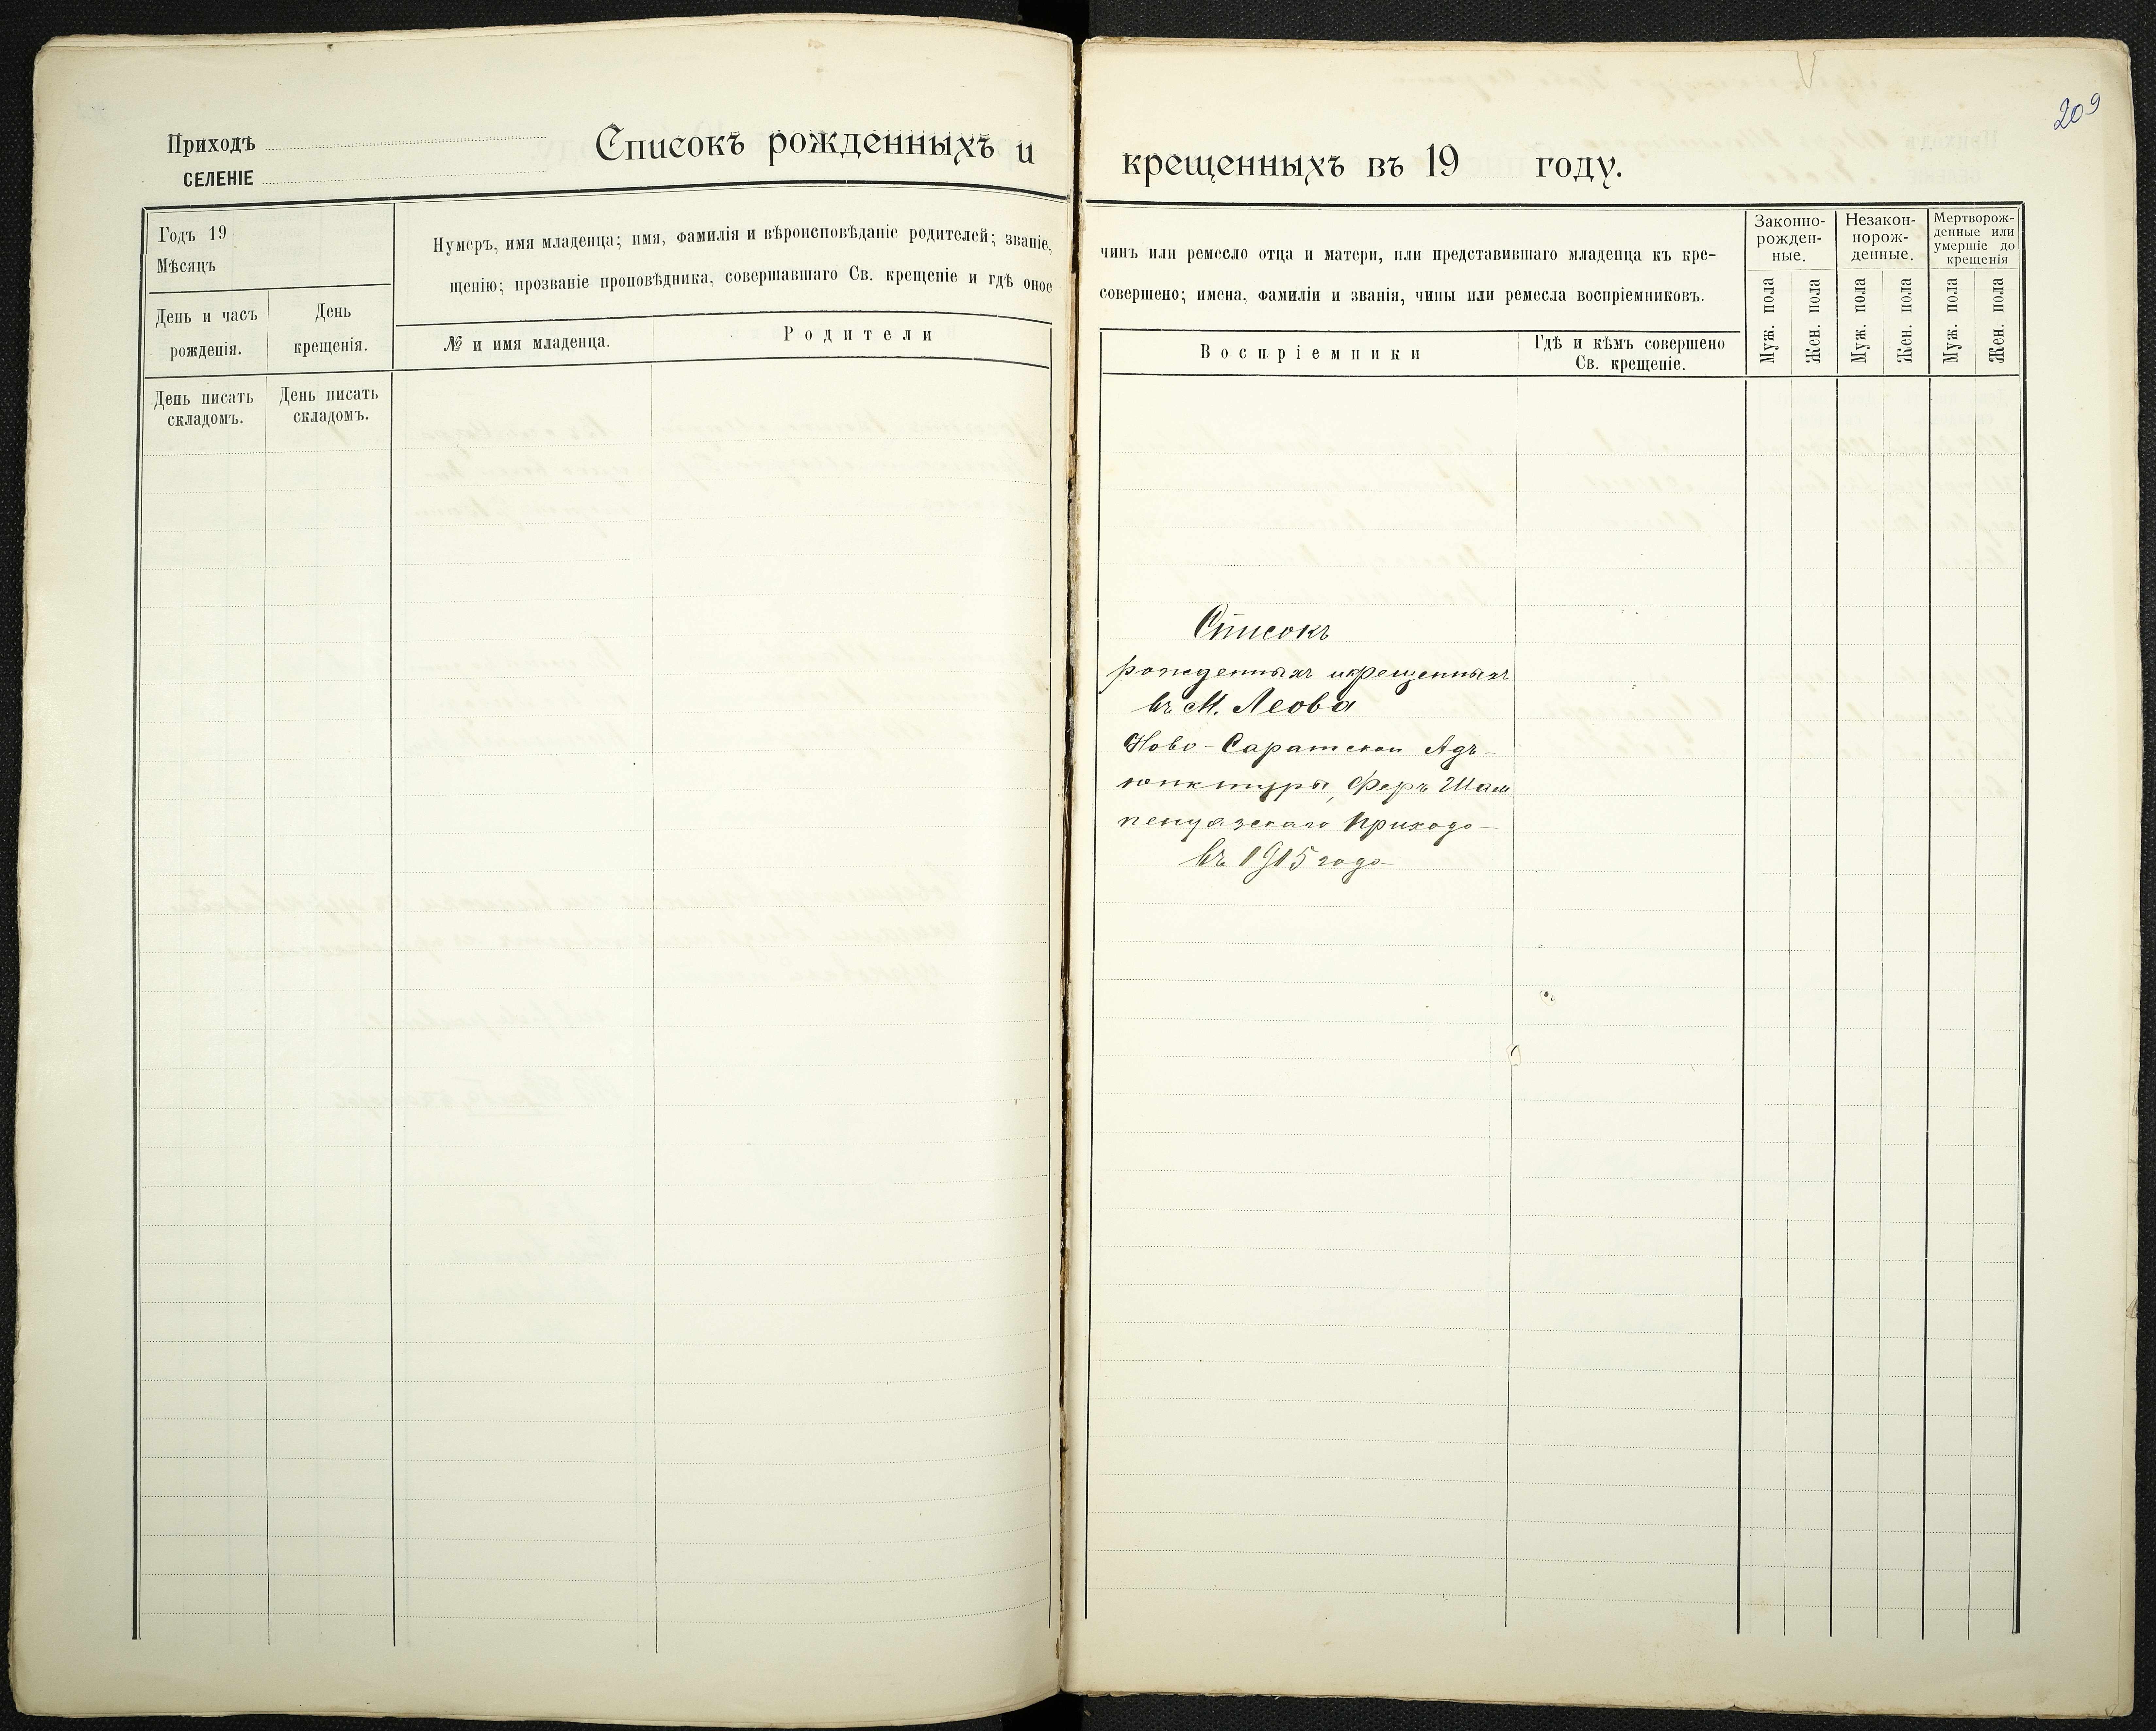 Приходъ
СЕЛЕНІЕ
Списокъ рожденныхъ и
Годъ 19
Мѣсяцъ
Нумеръ, имя младенца; имя, фамилія и вѣроисповѣданіе родителей; званіе,
щенію; прозваніе проповѣдника, совершавшаго Св. крещеніе и гдѣ оное
День и часъ
рожденія.
День
крещенія.
№ и имя младенца.
Родители
День писать
складомъ.
День писать
складомъ.
209
крещенныхъ въ 19 году.
чинъ или ремесло отца и матери, или представившаго младенца къ кре-
совершено; имена, фамиліи и званія, чины или ремесла воспріемниковъ.
Воспріемники
Гдѣ и кѣмъ совершено
Св. крещеніе.
Законно-
рожден-
ные.
Незакон-
норож-
денные.
Мертворож-
денные или
умершіе до
крещенія
Муж. пола
Жен. пола
Муж. пола
Жен. пола
Муж. пола
Жен. пола
Списокъ
рожденныхъ и крещенныхъ
въ М. Леова
Ново-Саратской Адъ-
юнктуры, Феръ Шам
пенуазскаго Прихода
въ 1915 годо